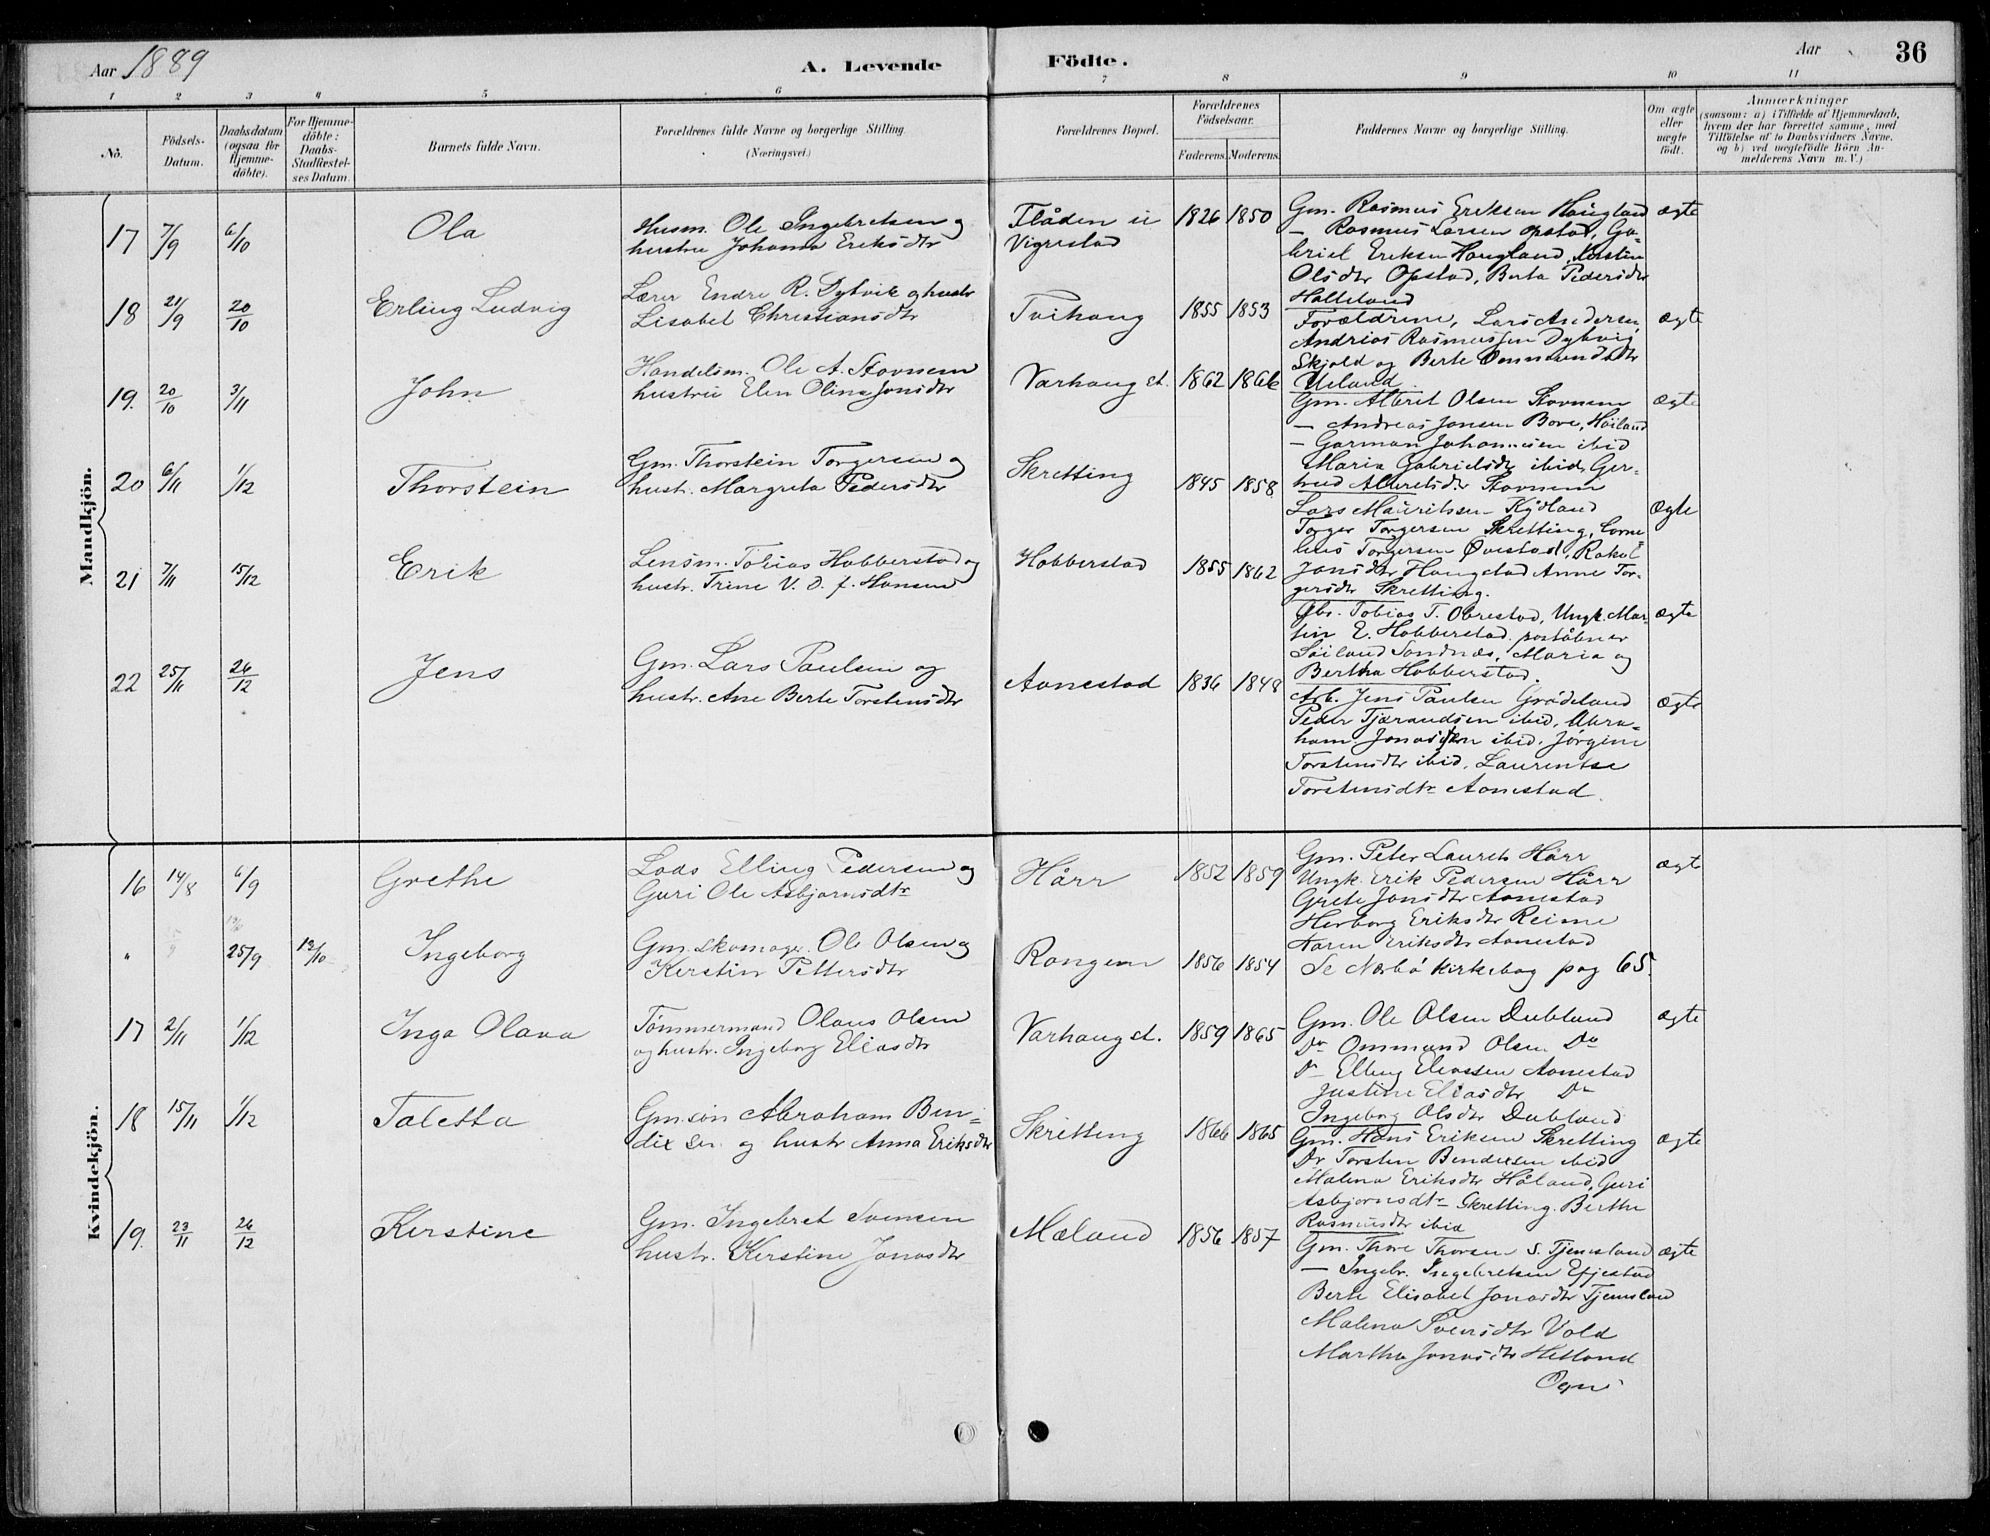 Aar 1889
A. Levende Födte.
Aar
36
1 2 3 4 5 6 7 8 9 10 11
No.
Födsels-Datum.
Daabsdatum (ogsaa for Hjemme-döbte).
For Hjemme-döbte: Daabs-Stadfæstel-ses Datum.
Barnets fulde Navn.
Forældrenes fulde Navne og borgerlige Stilling. (Næringsvei.)
Forældrenes Bopæl.
Forældrenes Födselsaar.
Faderens. Moderens.
Faddernes Navne og borgerlige Stilling.
Om ægte eller uægte födt.
Anmærkninger
(saasom: a) i Tilfælde af Hjemmedaab, hvem der har forrettet samme, med Tilföielse af to Daabsvidners Navne, og b) ved uægtefödte Börn An-melderens Navn m. V.)
Mandkjön.
17 7/9 6/10 Ola
Husm. Ole Ingebretsen og
hustru Johanna Eriksdtr
Flåden u
Vigrestad
1826 1850
Gm. Rasmus Eriksen Haugland
— Rasmus Larsen Opstad, Ga-
briel Eriksen Haugland, Kerstin
Olsdtr Opstad, Berta Pedersdtr
Halleland
ægte
18 21/9 20/10 Erling Ludvig
Lærer Endre R. Dybvik og hustr
Lisabet Christiansdtr
Tvihaug
1855 1853
Forældrene, Lars Andersen,
Andreas Rasmussen Dybvig
Skjold og Berte Ommundsdtr
Ueland.
ægte
19. 20/10 3/11 John
Handelsm. Ole A. Stovnem
hustru Elen Oline Jonsdtr
Varhaug st.
1862 1866
Gm. Albret Olsen Stovnem
— Andreas Jonsen Bore, Høiland
— Garman Johannesen ibid
Maria Gabrielsdtr ibid, Ger-
trud Albretsdtr Stovnem
ægte
20 6/11 1/12 Thorstein
Gm. Thorstein Torgersen og
hustr. Margreta Pedersdtr
Skretting
1845 1858
Lars Mauritssen Kydland
Torger Torgersen Skretting, Corne-
lius Torgersen Øvestad, Rakel
Jonsdtr Haugstad Anne Tor-
gersdtr Skretting.
ægte
21 7/11 15/12 Erik
Lensm. Tobias Hobberstad og
hustr. Trine V. D. f. Hansen
Hobberstad
1855 1862
Gbr. Tobias T. Obrestad, Ungk. Mar-
tin E. Hobberstad. postabner
Söiland Sandnæs, Maria og
Bertha Hobberstad.
ægte
22 25/11 26/12 Jens
Gm. Lars Paulsen og
hustr. Ane Berte Torstensdtr
Aanestad
1836 1848
Arb. Jens Paulsen Grødeland
Peder Tjærandsen ibid, Abra-
ham Jonassen ibid. Jörgine
Torstensdtr ibid, Laurentse
Torstensdtr Aanestad.
ægte
Kvindekjön.
16 14/8 6/9 Grethe
Lods Elling Pedersen og
Guri Ole Asbjornsdtr
Hårr
1852 1859
Gm. Peter Laurits Hårr
Ungk. Erik Pedersen Hårr
Grete Jonsdtr Aanestad
Herborg Eriksdtr Reime
Karen Eriksdtr Aanestad
ægte
" 25/9 13/10 Ingeborg
Gm. skomager. Ole Olsen og
Kerstin Pettersdtr
Rongen
1856 1854
Se Nærbö kirkebog pag 65.
17 2/11 1/12 Inga Olava
Tömmermand Olaus Olsen
og hustr. Ingeborg Eliasdtr
Varhaug st.
1859 1865
Gm. Ole Olsen Dubland
Do Ommund Olsen Do
Do Elling Eliassen Aanestad
Justine Eliasdtr Do
Ingeborg Olsdtr Dubland
ægte
18 15/11 1/12 Taletta
Gm. søn Abraham Ben-
dix sen og hustr Anna Eriksdtr
Skretting
1866 1865
Gm. Hans Eriksen Skretting
Do Torsten Bendixsen ibid
Malena Eriksdtr Håland, Guri
Asbjornsdtr Skretting. Berthe
Rasmusdtr ibid
ægte
19. 23/11 26/12 Kerstine
Gm. Ingebret Svensen
hustr. Kerstine Jonasdtr
Mæland
1856 1857
Gm. Thore Thorsen S. Tjemsland
— Ingebr. Ingebretsen Efjestad
Berte Elisabet Jonasdtr Tjemsland
Malena Svensdtr Vold
Martha Jonasdtr Hetland
Ogne
ægte